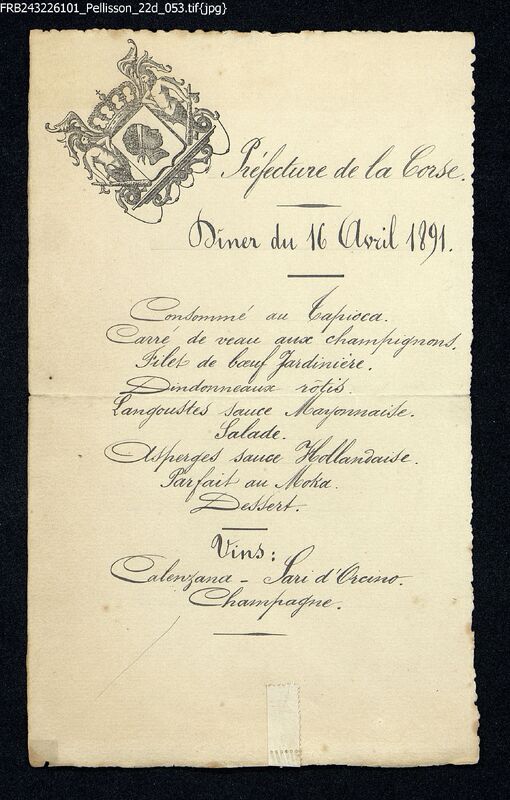 FRB243226101_Pellisson_22d_053.tif{jpg}
Préfecture de la Corse.
Dîner du 16 Avril 1891.
Consommé au Tapioca.
Carré de veau aux champignons.
Filet de bœuf Jardinière.
Dindonneaux rôtis.
Langoustes sauce Mayonnaise.
Salade.
Asperges sauce Hollandaise.
Parfait au Moka.
Dessert.
Vins:
Calenzana - Sari d'Orcino.
Champagne.